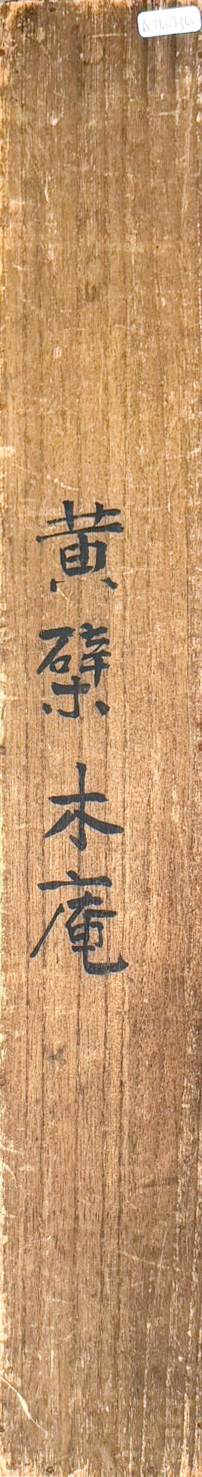 黄檗木庵